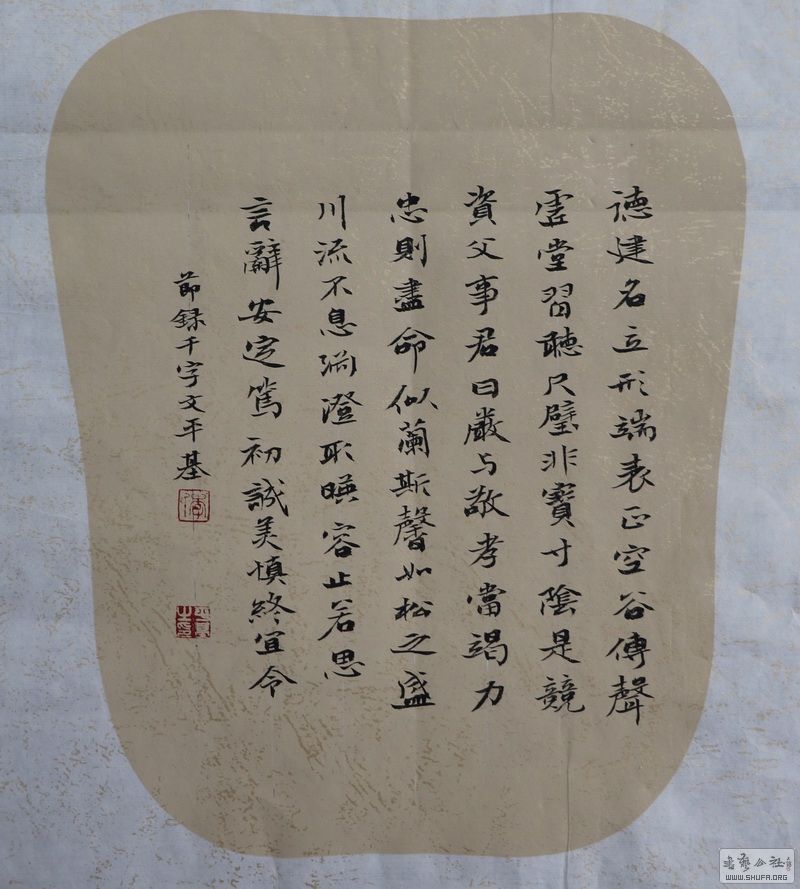 德建名立形端表正空谷傳聲
虛堂習聽尺璧非寶寸陰是競
資父事君曰嚴与敬孝當竭力
忠則盡命似蘭斯馨如松之盛
川流不息渊澄取暎容止若思
言辭安定篤初誠美慎終宜令
節録千字文平基
WWW.SHUFA.ORG